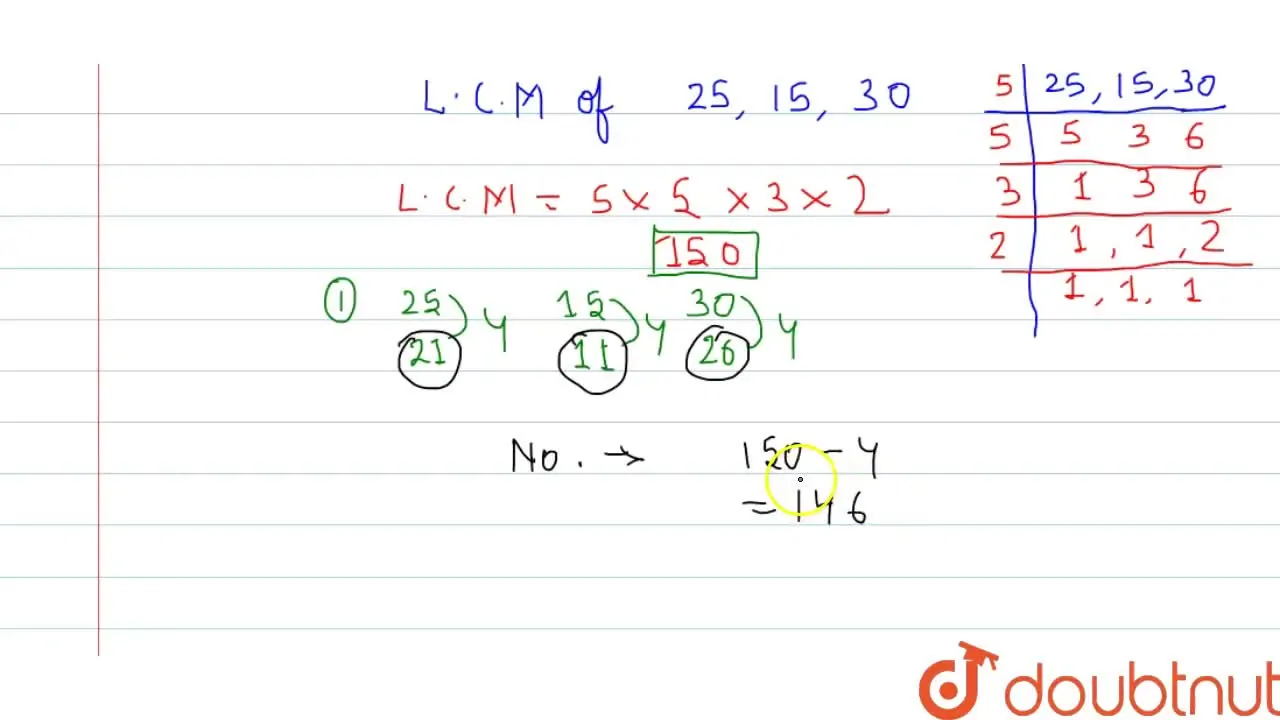 L.C.M of 25, 15, 30
L.C.M = 5 × 5 × 3 × 2
150
① 25 ) 4 15 ) 4 30 ) 4
21 11 26
No. → 150 - 4
= 146
5 | 25, 15, 30
5 | 5 3 6
3 | 1 3 6
2 | 1, 1, 2
1, 1, 1
doubtnut